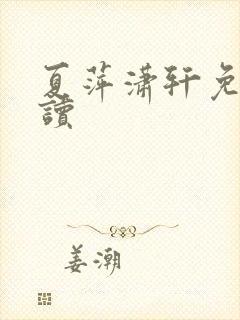 夏萍潇轩免
讀
姜潮